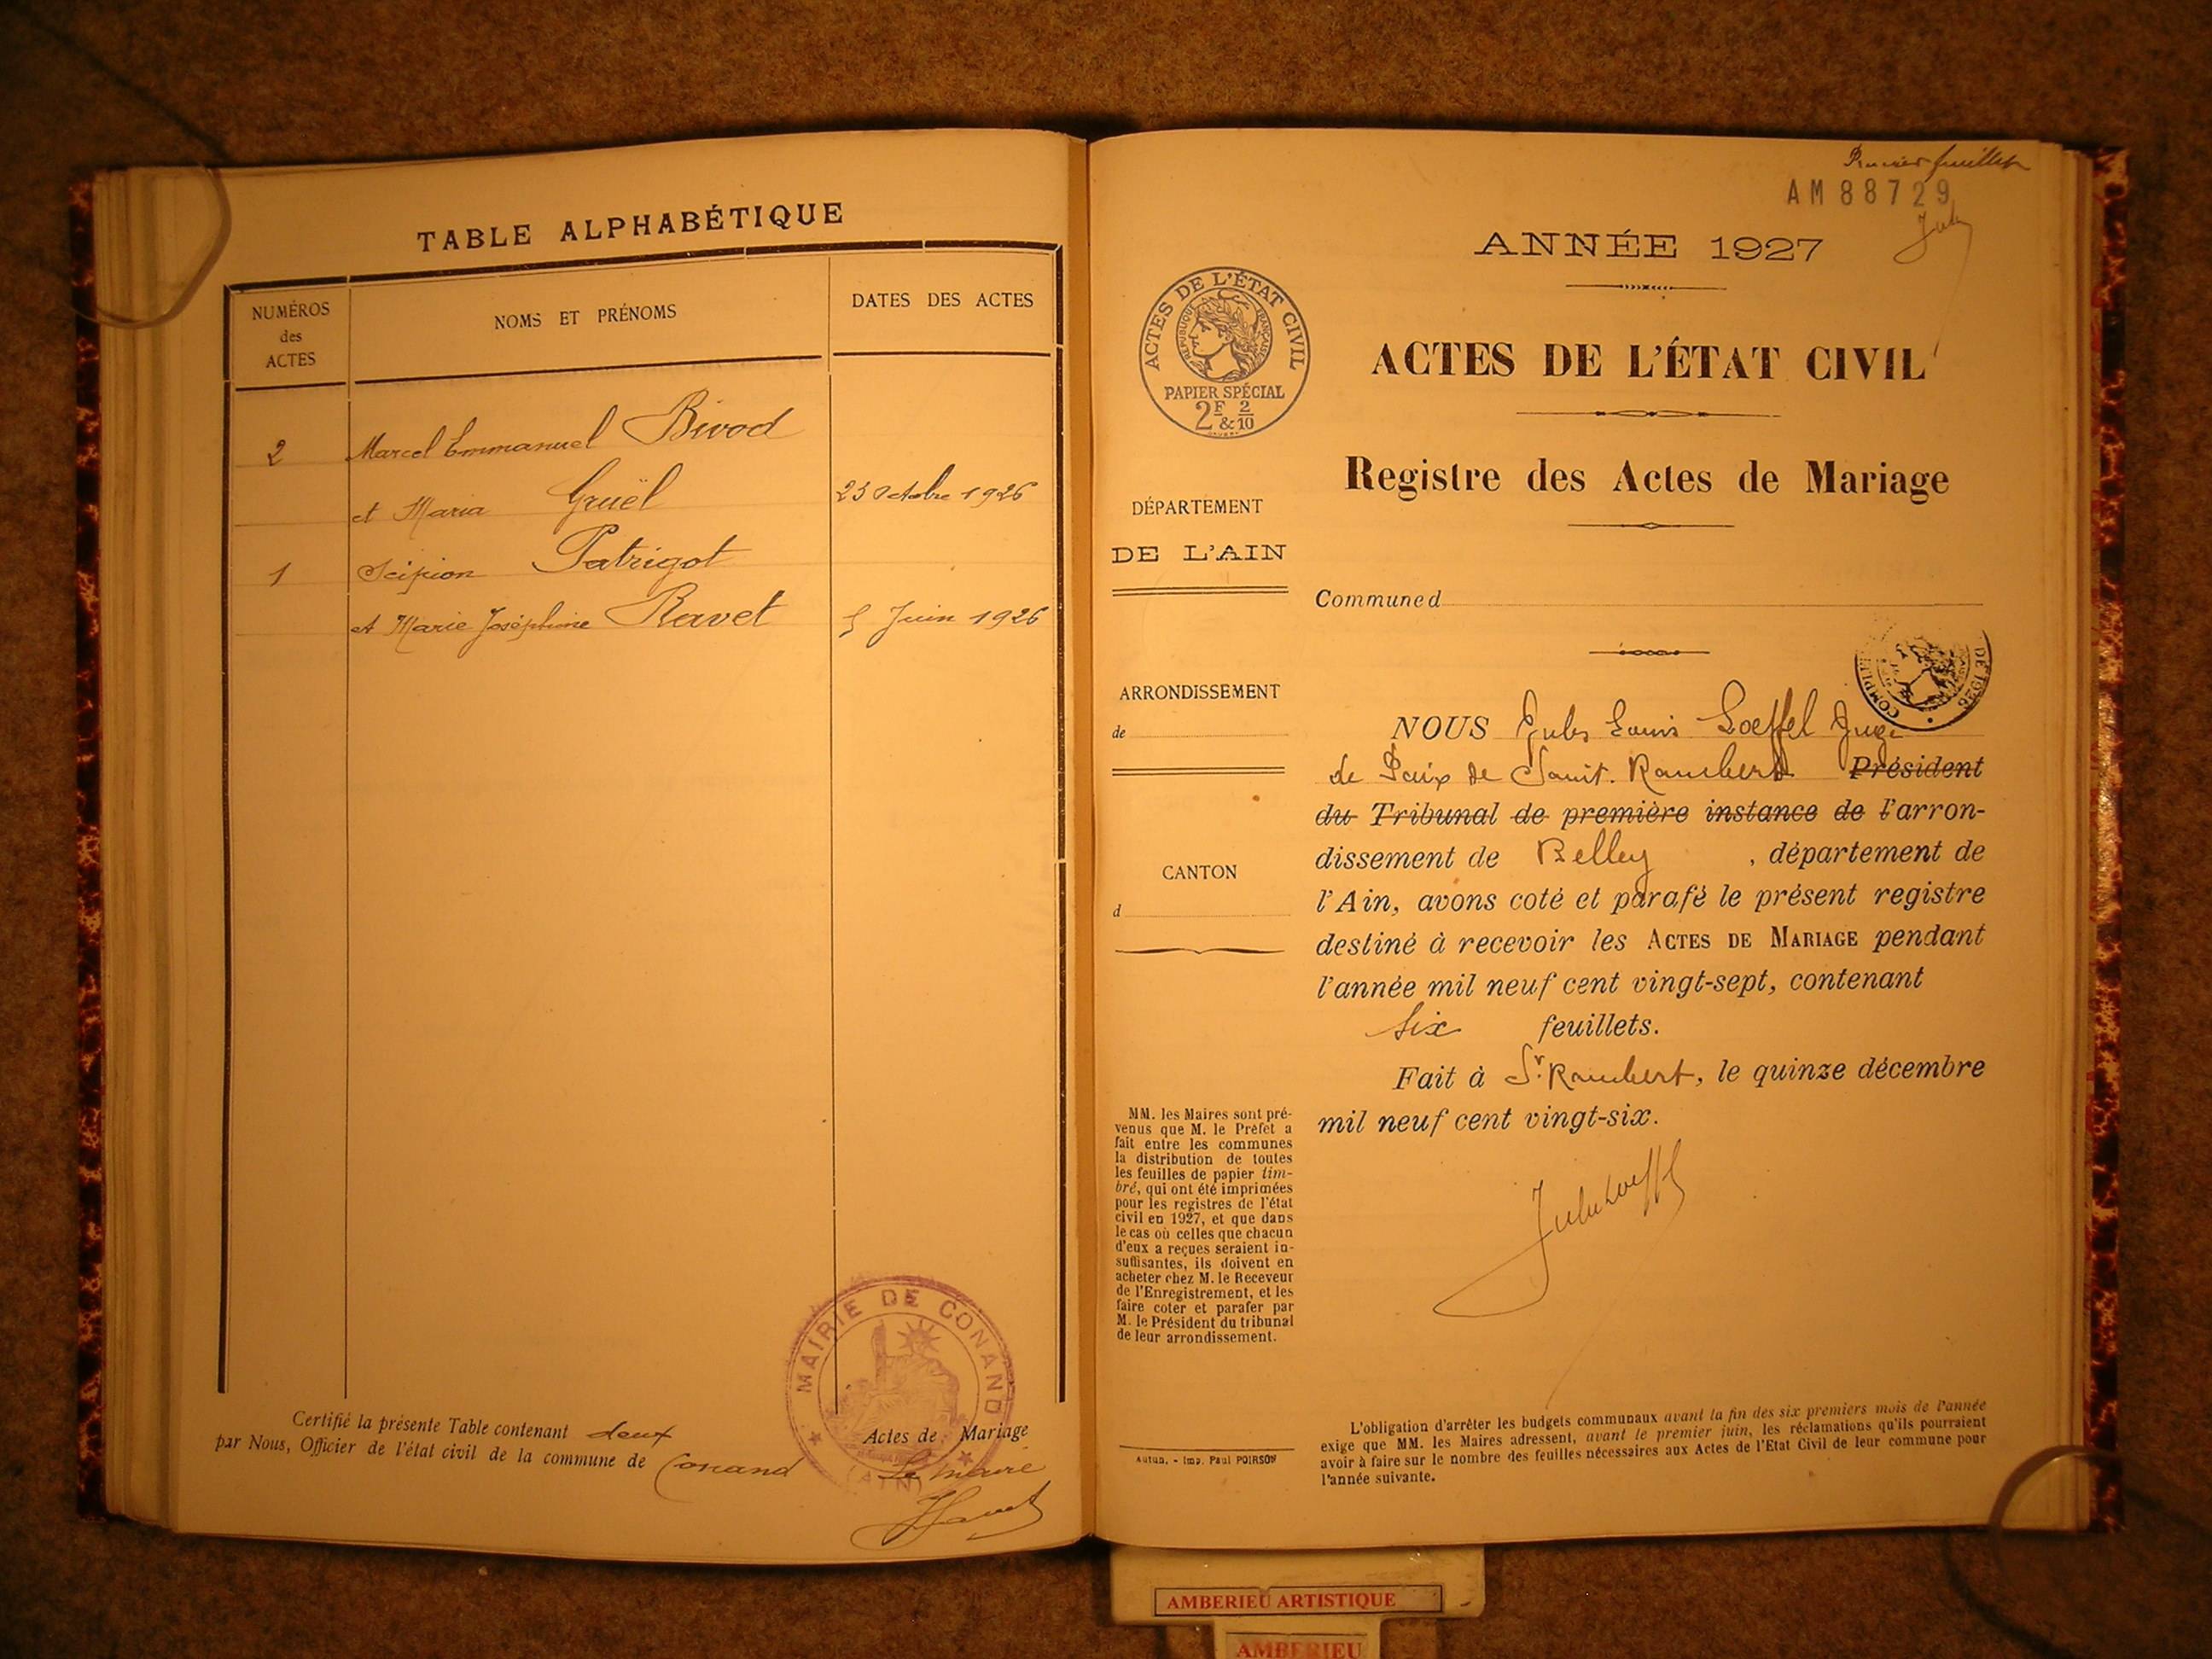 TABLE ALPHABÉTIQUE
NUMÉROS
des
ACTES
NOMS ET PRÉNOMS
DATES DES ACTES
2 Marcel Emmanuel Bivod
et Maria Gruël 23 Octobre 1926
1 Scipion Patrigot
et Marie Joséphine Ravet 5 Juin 1926
MAIRIE DE CONAND
(AIN)
Certifié la présente Table contenant deux Actes de Mariage
par Nous, Officier de l'état civil de la commune de Conand Le maire
Premier feuillet
AM88729
ANNÉE 1927
ACTES DE L'ÉTAT CIVIL
RÉPUBLIQUE FRANÇAISE
PAPIER SPÉCIAL
2F & 2/10
ACTES DE L'ÉTAT CIVIL
Registre des Actes de Mariage
DÉPARTEMENT
DE L'AIN
Commune d
ARRONDISSEMENT
de
CANTON
d
DE 1926
NOUS Jules Louis Loeffel Juge
de Paix de Saint-Rambert Président
du Tribunal de première instance de l'arron-
dissement de Belley, département de
l'Ain, avons coté et parafé le présent registre
destiné à recevoir les ACTES DE MARIAGE pendant
l'année mil neuf cent vingt-sept, contenant
six feuillets.
Fait à St. Rambert, le quinze décembre
mil neuf cent vingt-six.
MM. les Maires sont pré-
venus que M. le Préfet a
fait entre les communes
la distribution de toutes
les feuilles de papier tim-
bré, qui ont été imprimées
pour les registres de l'état
civil en 1927, et que dans
le cas où celles que chacun
d'eux a reçues seraient in-
suffisantes, ils doivent en
acheter chez M. le Receveur
de l'Enregistrement, et les
faire coter et parafer par
M. le Président du tribunal
de leur arrondissement.
Autun. - Imp. Paul POIRSON
L'obligation d'arrêter les budgets communaux avant la fin des six premiers mois de l'année
exige que MM. les Maires adressent, avant le premier juin, les réclamations qu'ils pourraient
avoir à faire sur le nombre des feuilles nécessaires aux Actes de l'Etat Civil de leur commune pour
l'année suivante.
AMBERIEU ARTISTIQUE
AMBERIEU